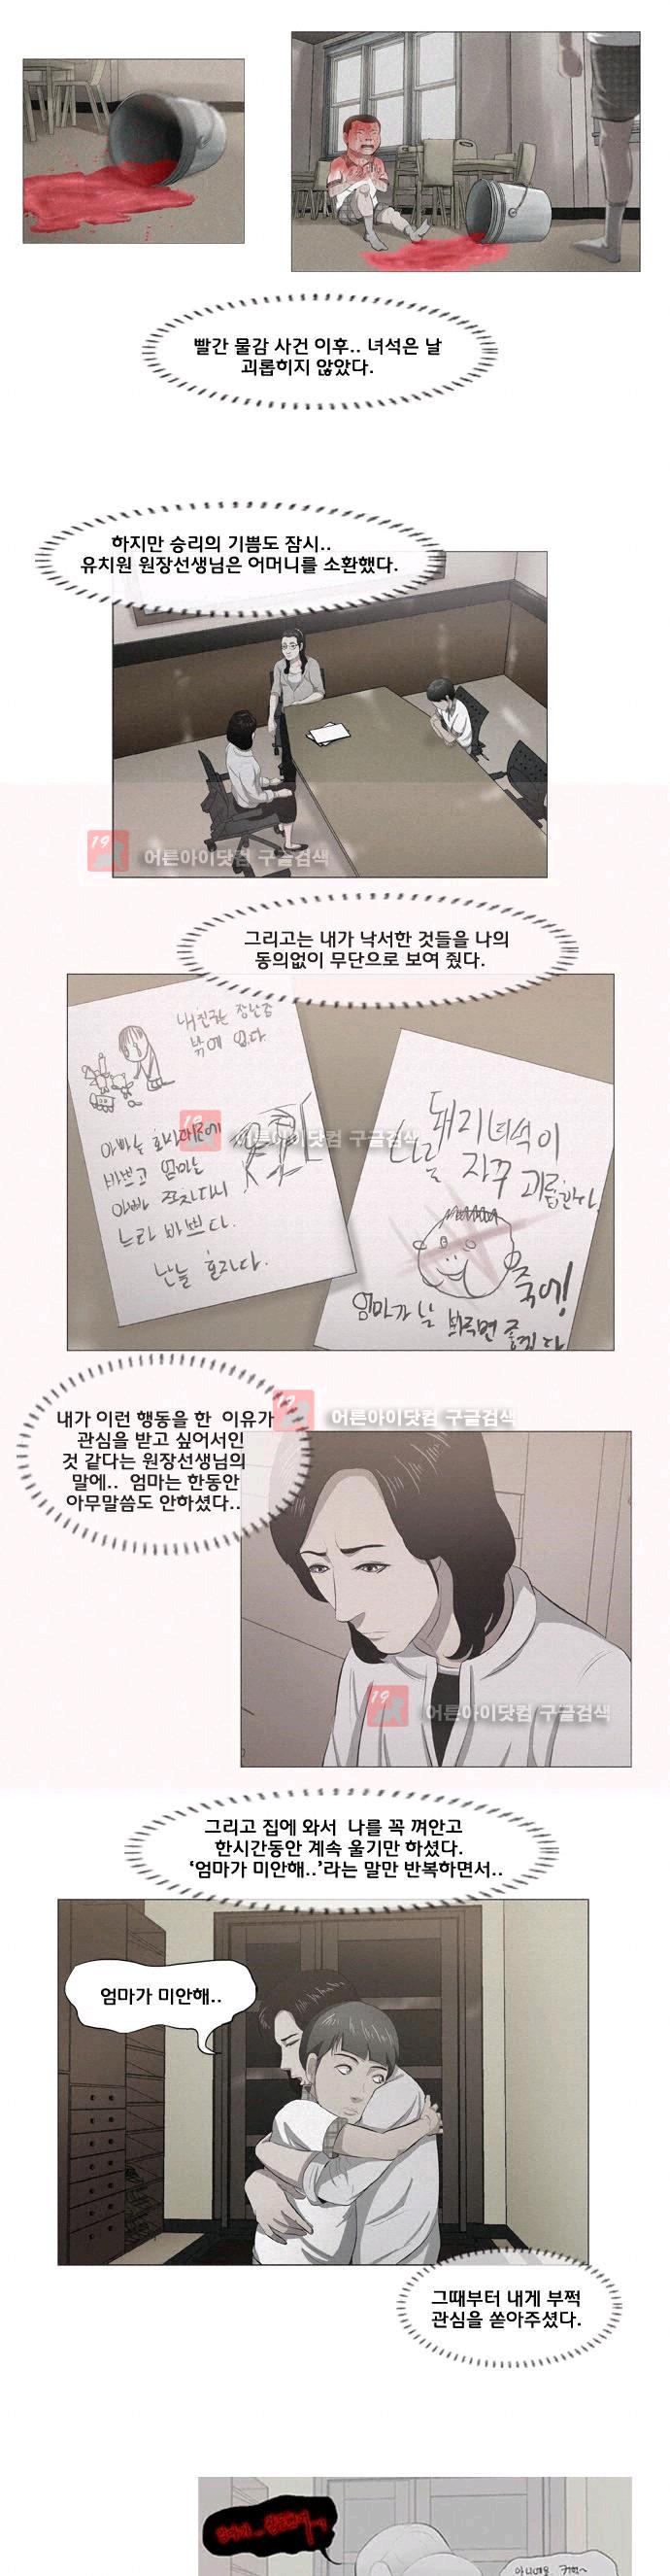 빨간 물감 사건 이후.. 녀석은 날
괴롭히지 않았다.
하지만 승리의 기쁨도 잠시..
유치원 원장선생님은 어머니를 소환했다.
19
어른아이닷컴 구글검색
그리고는 내가 낙서한 것들을 나의
동의없이 무단으로 보여 줬다.
내친구는 장난감
밖에 없다
19
어른아이닷컴 구글검색
아빠는 회사때문에
바쁘고 엄마는
아빠 쫓아다시
느라 바쁘다.
난늘 혼자다.
돼지녀석이
나를 자꾸 괴롭힌다.
죽어!
엄마가 날 봐주면 좋겠다
19
어른아이닷컴 구글검색
내가 이런 행동을 한 이유가
관심을 받고 싶어서인
것 같다는 원장선생님의
말에.. 엄마는 한동안
아무말씀도 안하셨다..
19
어른아이닷컴 구글검색
그리고 집에 와서 나를 꼭 껴안고
한시간동안 계속 울기만 하셨다.
‘엄마가 미안해..’라는 말만 반복하면서..
엄마가 미안해..
그때부터 내게 부쩍
관심을 쏟아주셨다.